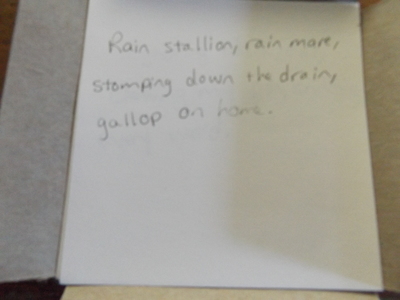 Rain stallion, rain mare,
stomping down the drain,
gallop on home.